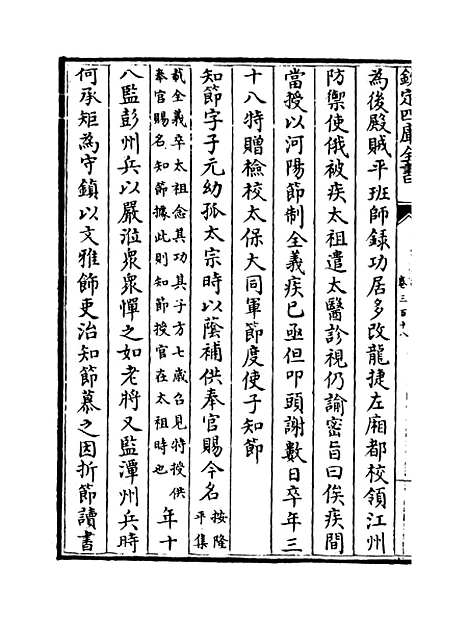 欽定四庫全書
卷三百十八
為後殿賊平班師録功居多改龍捷左廂都校領江州
防禦使俄被疾太祖遣太醫診視仍諭密旨曰俟疾間
當授以河陽節制全義疾已亟但叩頭謝數日卒年三
十八特贈檢校太保大同軍節度使子知節
知節字子元幼孤太宗時以蔭補供奉官賜今名按隆平集
載全義卒太祖念其功其子方七歳召見特授供奉官賜名知節據此則知節授官在太祖時也年十
八監彭州兵以嚴涖衆衆憚之如老將又監潭州兵時
何承矩為守鎮以文雅飾吏治知節慕之因折節讀書